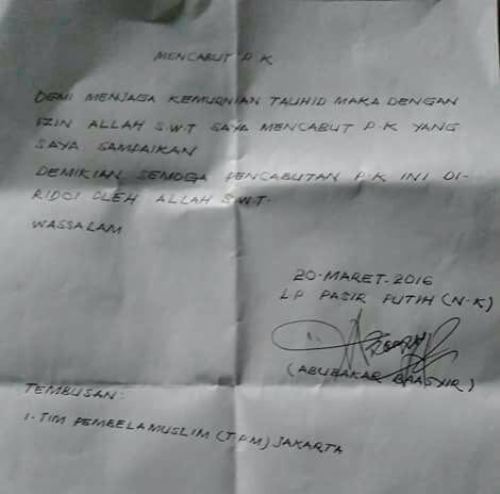 MENCABUT P K
DEMI MENJAGA KEMURNIAN TAUHID MAKA DENGAN
IZIN ALLAH S.W.T SAYA MENCABUT P.K YANG
SAYA SAMPAIKAN
DEMIKIAN SEMOGA PENCABUTAN P.K INI DI-
RIDOI OLEH ALLAH S.W.T.
WASSALAM
20-MARET-2016
LP PASIR PUTIH (N.K)
(ABUBAKAR BAASYIR)
TEMBUSAN:
1. TIM PEMBELA MUSLIM (TPM) JAKARTA